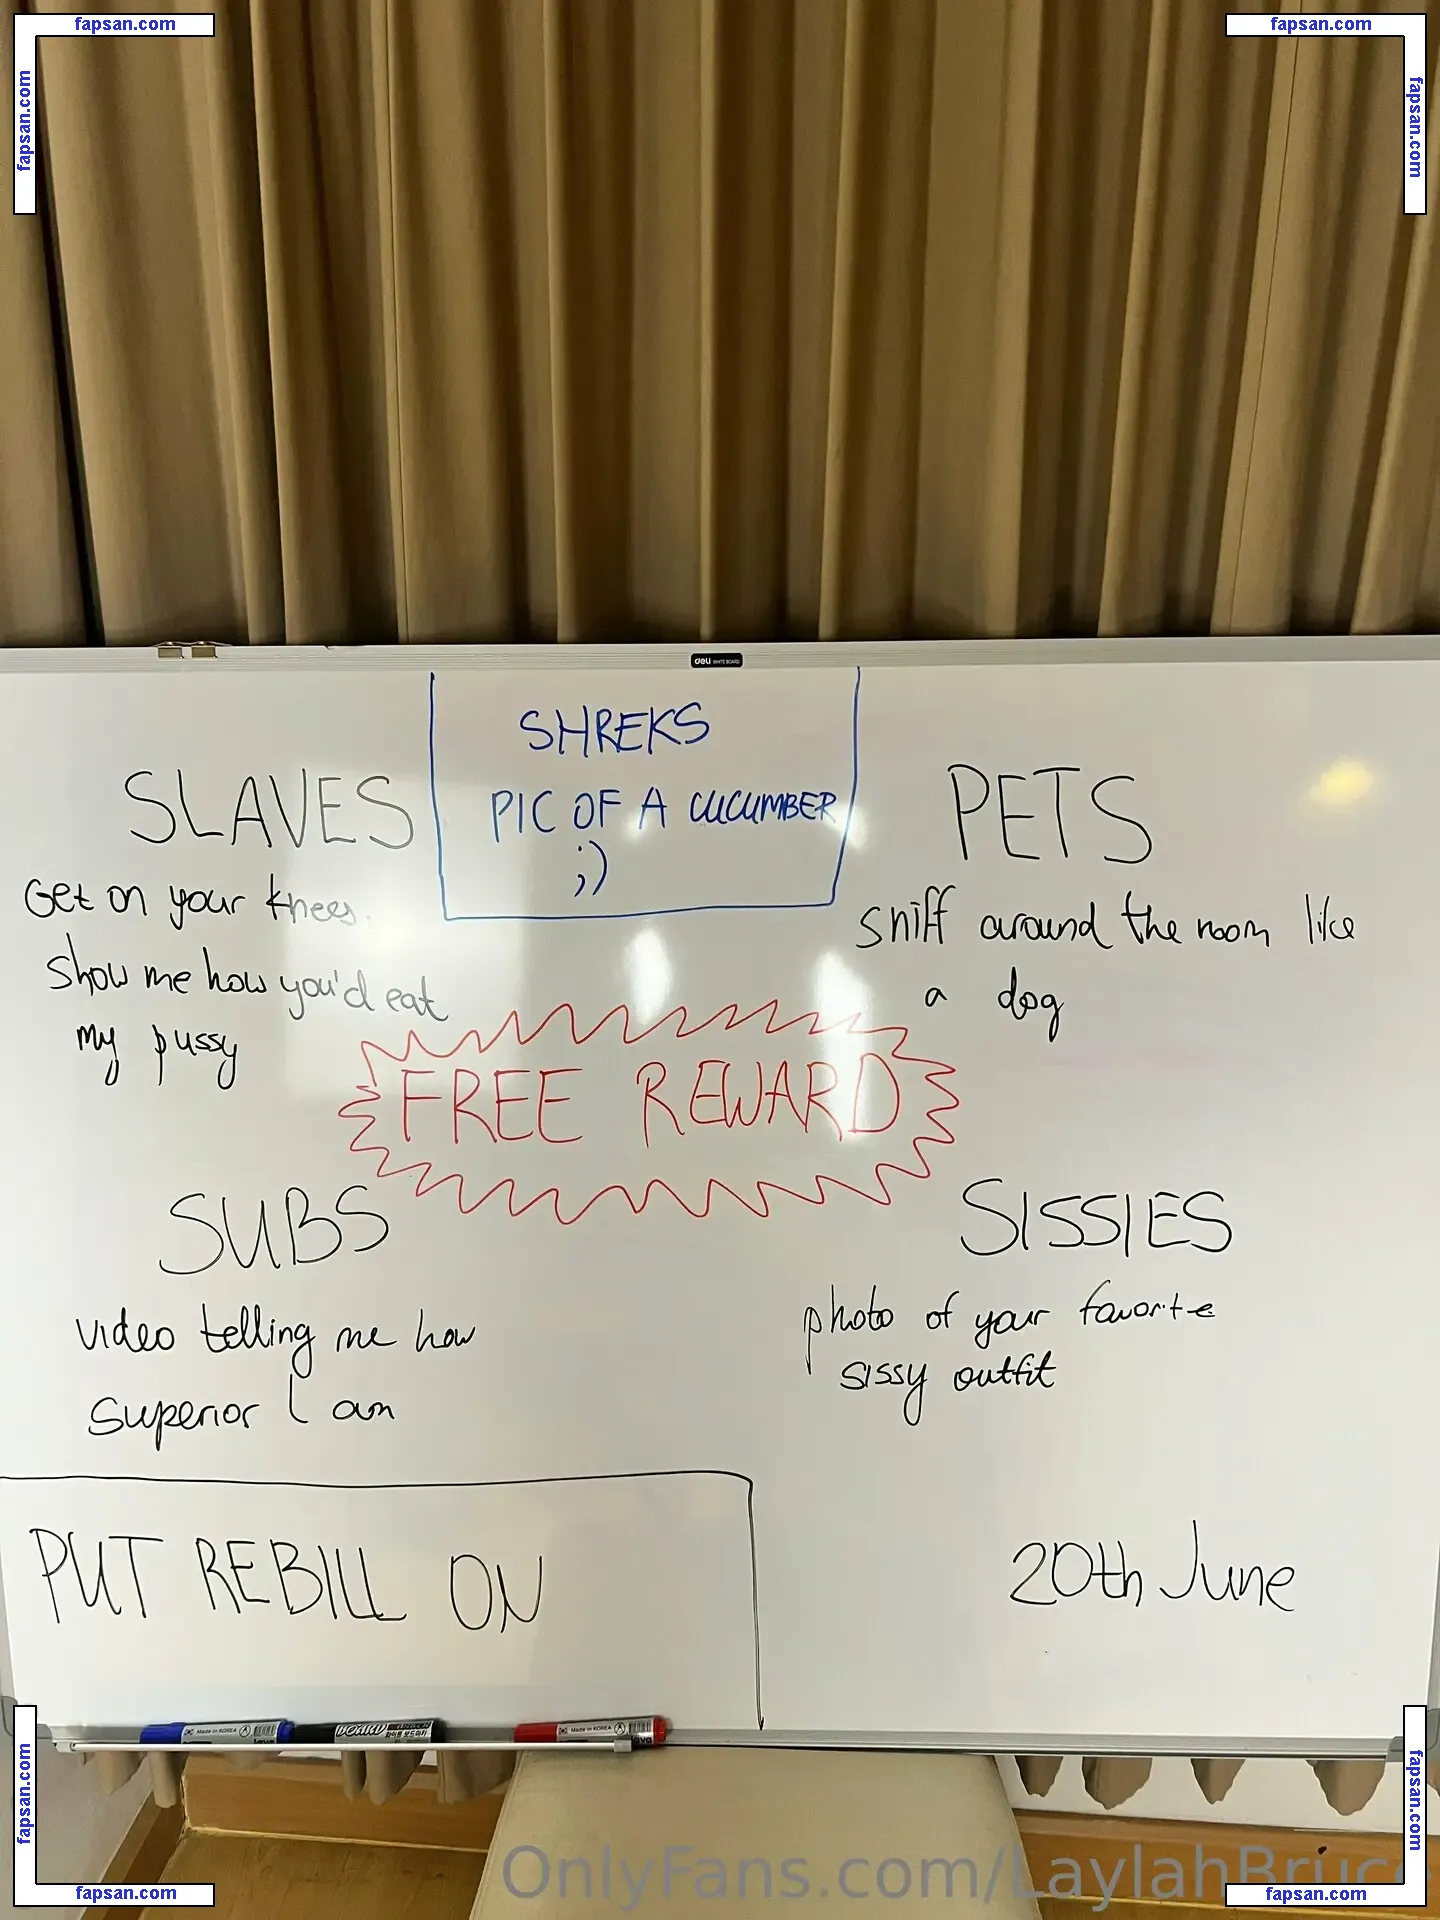 fapsan.com
fapsan.com
fapsan.com
fapsan.com
deli WHITE BOARD
SHREKS
PIC OF A CUCUMBER
;)
SLAVES
Get on your knees.
Show me how you'd eat
my pussy
PETS
Sniff around the room like
a dog
FREE REWARD
SUBS
video telling me how
superior I am
SISSIES
photo of your favorite
sissy outfit
PUT REBILL ON
20th June
Made in KOREA
BOARD
Made in KOREA
OnlyFans.com/LaylahBruce
fapsan.com
fapsan.com
fapsan.com
fapsan.com